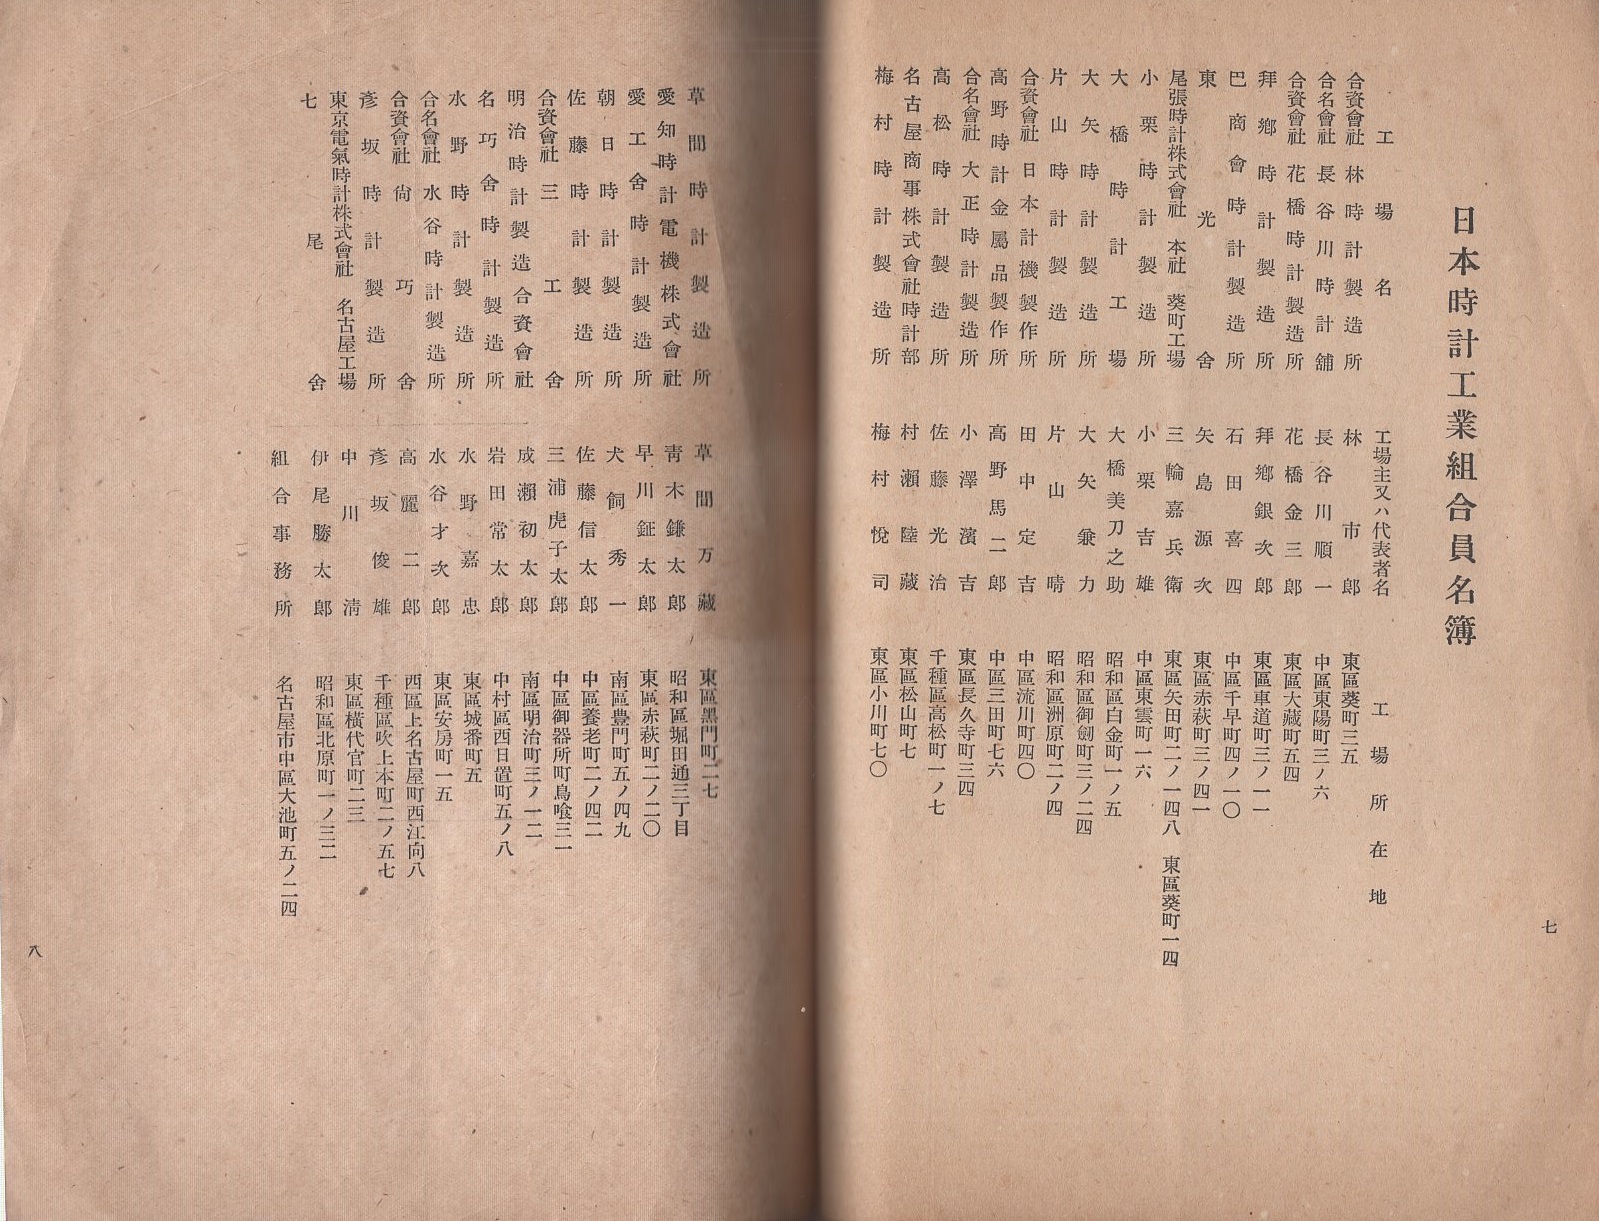 日本時計工業組合員名簿
工場名 工場主又ハ代表者名 工場所在地
合資會社林時計製造所 林市郎 東區葵町三五
合名會社長谷川時計舖 長谷川順一 中區東陽町三ノ六
合資會社花橋時計製造所 花橋金三郎 東區大藏町五四
拜鄕時計製造所 拜鄕銀次郎 東區車道町三ノ一一
巴商會時計製造所 石田喜四 中區千早町四ノ一〇
東光舍 矢島源次 東區赤萩町三ノ四一
尾張時計株式會社 本社 葵町工場 三輪嘉兵衛 東區矢田町二ノ一四八 東區葵町一四
小栗時計製造所 小栗吉雄 中區東雲町一六
大橋時計工場 大橋美刀之助 昭和區白金町一ノ五
大矢時計製造所 大矢兼力 昭和區御劍町三ノ二四
片山時計製造所 片山晴 昭和區洲原町二ノ四
合資會社日本計機製作所 田中定吉 中區流川町四〇
高野時計金屬品製作所 高野馬二郎 中區三田町七六
合名會社大正時計製造所 小澤濱吉 東區長久寺町三四
高松時計製造所 佐藤光治 千種區高松町一ノ七
名古屋商事株式會社時計部 村瀨陸藏 東區松山町七
梅村時計製造所 梅村悅司 東區小川町七〇
七
草間時計製造所 草間万藏 東區黑門町二七
愛知時計電機株式會社 靑木鎌太郎 昭和區堀田通三丁目
愛工舍時計製造所 早川鉦太郎 東區赤萩町二ノ二〇
朝日時計製造所 犬飼秀一 南區豊門町五ノ四九
佐藤時計製造所 佐藤信太郎 中區養老町二ノ四二
合資會社三工舍 三浦虎子太郎 中區御器所町鳥喰三一
明治時計製造合資會社 成瀨初太郎 南區明治町三ノ一二
名巧舍時計製造所 岩田常太郎 中村區西日置町五ノ八
水野時計製造所 水野嘉忠 東區城番町五
合名會社水谷時計製造所 水谷才次郎 東區安房町一五
合資會社尙巧舍 高麗二郎 西區上名古屋町西江向八
彥坂時計製造所 彥坂俊雄 千種區吹上本町二ノ五七
東京電氣時計株式會社 名古屋工場 中川淸 東區橫代官町二三
七尾舍 伊尾勝太郎 昭和區北原町一ノ三二
組合事務所 名古屋市中區大池町五ノ二四
八